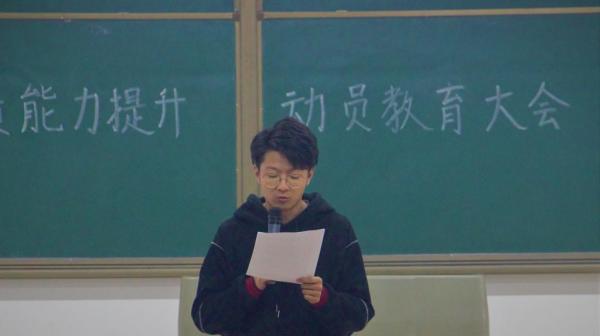 能力提升 动员教育大会